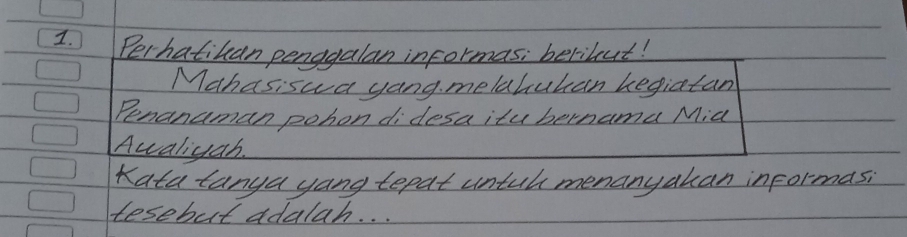 1. Perhatikan penggalan informasi berikut!
Mahasiswa yang melakukan kegiatan
Penanaman pohon di desa itu bernama Mia
Awaliyah.
Kata tanya yang tepat untuk menanyakan informasi
tesebut adalah...